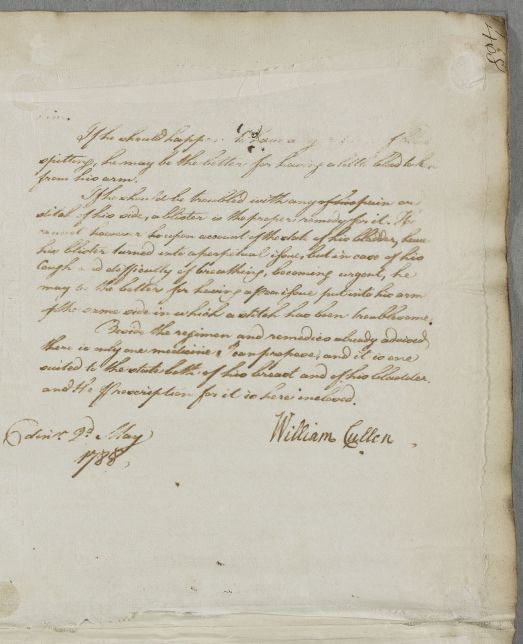 408
If he should happen to have a
spitting, he may be the better for having a little blood taken
from his arm.
If he should be troubled with any of his pain or
stitch of his side, a blister is the proper remedy for it. He
cannot however upon account of the state of his bladder, have
his blister turned into a perpetual issue, but in case of his
Cough and difficulty of breathing, becoming urgent, he
may be the better for having a pea issue put into his arm
of the same side in which a stitch has been troublesome.
Beside the regimen and remedies already advised,
there is only one medicine I can propose, and it is one
suited to the state both of his breast and of his bladder.
and the Prescription for it is here inclosed.
William Cullen
Edinr. 9d. May
1788,